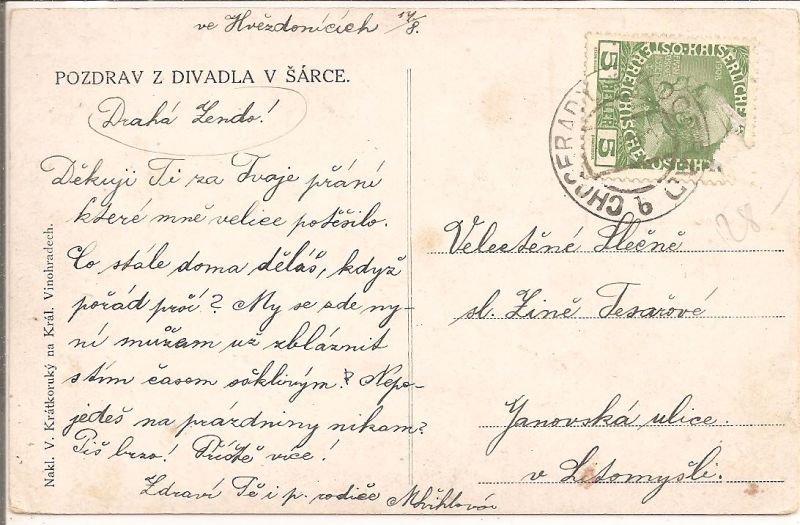 ve Hvězdonicích 14/8.
POZDRAV Z DIVADLA V ŠÁRCE.
Drahá Zendo!
Děkuji Ti za Tvoje přání
které mně velice potěšilo.
Co stále doma děláš, když
pořád prší? My se zde ny-
ní můžam už zbláznit
s tím časem ošklivým? Nepo-
jedeš na prázdniny nikam?
Piš brzo! Příště více!
Zdraví Tě i p. rodiče
Nakl. V. Krátkoruký na Král. Vinohradech.
5 HELLER 5
CHOCERADY
28
Velectěné Slečně
sl. Zině Tesařové
Janovská ulice
v Litomyšli.